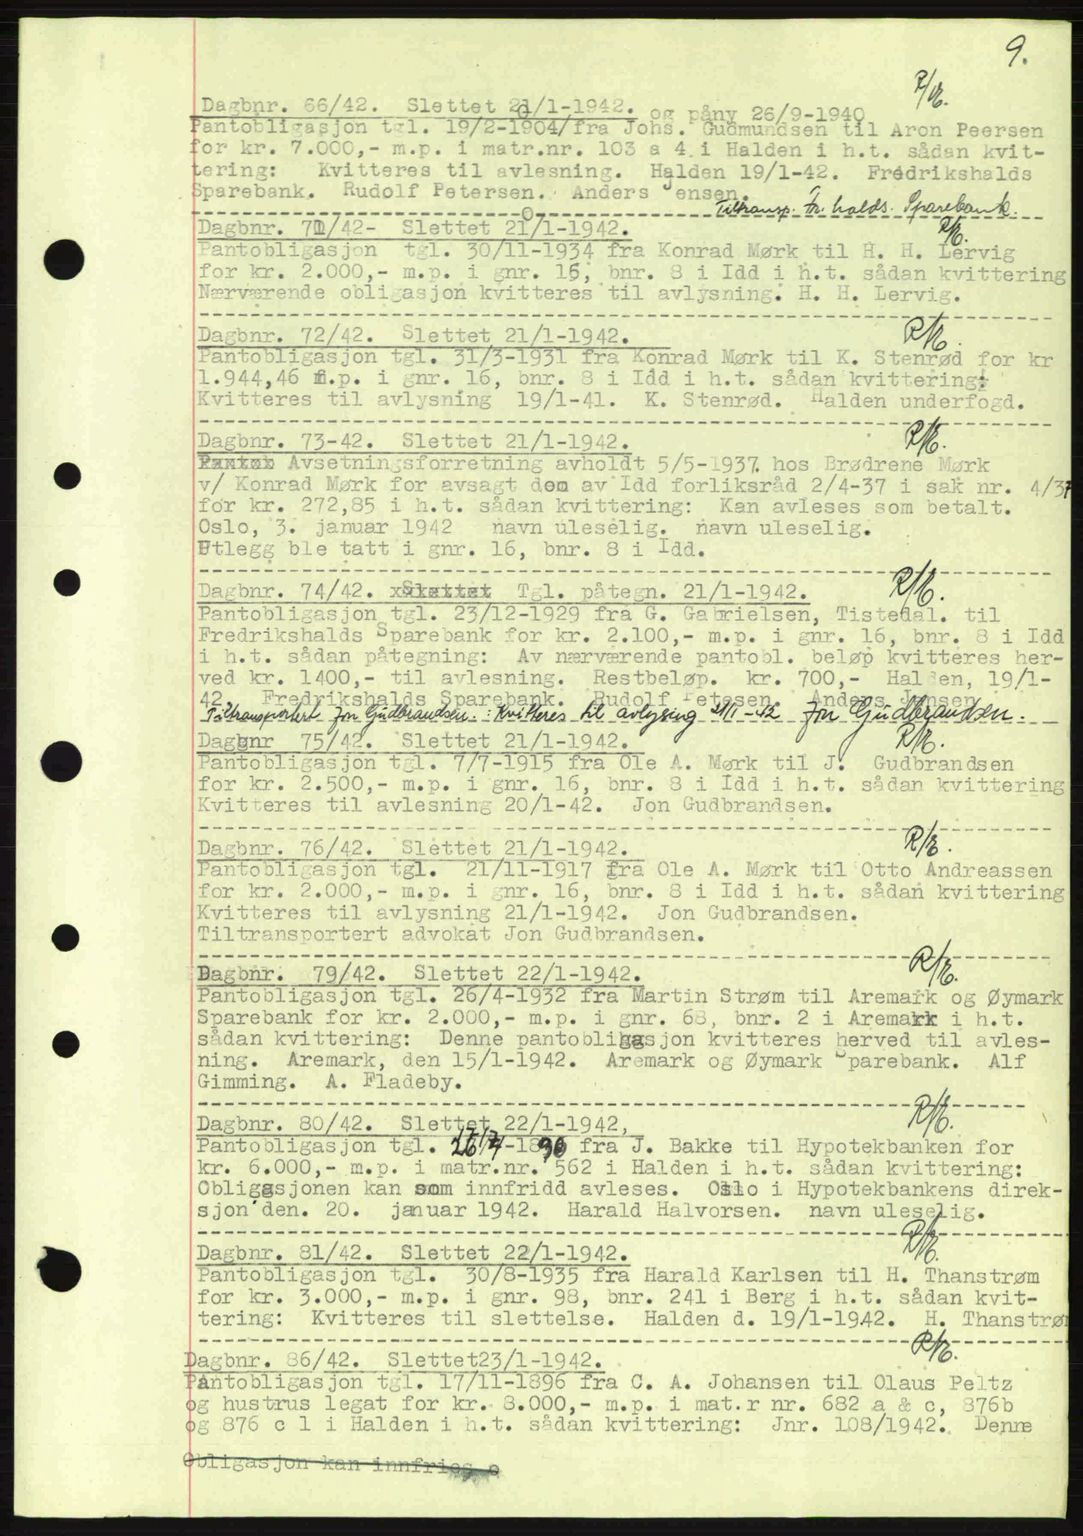 9.
R/E.
Dagbnr. 66/42. Slettet 20/1-1942. og påny 26/9-1940
Pantobligasjon tgl. 19/2-1904/fra Johs. Gudmundsen til Aron Peersen
for kr. 7.000,- m.p. i matr.nr. 103 a 4 i Halden i h.t. sådan kvit-
tering: Kvitteres til avlesning. Halden 19/1-42. Fredrikshalds
Sparebank. Rudolf Petersen. Anders Jensen.
Tiltransp. Fr.halds. Sparebank.
Dagbnr. 71/42- Slettet 20/1-1942. R/E.
Pantobligasjon tgl. 30/11-1934 fra Konrad Mørk til H. H. Lervig
for kr. 2.000,- m.p. i gnr. 16, bnr. 8 i Idd i h.t. sådan kvittering
Nærværende obligasjon kvitteres til avlysning. H. H. Lervig.
Dagbnr. 72/42. Slettet 21/1-1942. R/E.
Pantobligasjon tgl. 31/3-1931 fra Konrad Mørk til K. Stenrød for kr
1.944,46 m.p. i gnr. 16, bnr. 8 i Idd i h.t. sådan kvittering:
Kvitteres til avlysning 19/1-41. K. Stenrød. Halden underfogd.
Dagbnr. 73-42. Slettet 21/1-1942. R/E.
Avsetningsforretning avholdt 5/5-1937 hos Brødrene Mørk
v/ Konrad Mørk for avsagt dom av Idd forliksråd 2/4-37 i sak nr. 4/37
for kr. 272,85 i h.t. sådan kvittering: Kan avleses som betalt.
Oslo, 3. januar 1942 navn uleselig. navn uleselig.
Utlegg ble tatt i gnr. 16, bnr. 8 i Idd.
Dagbnr. 74/42. xSlettet Tgl. påtegn. 21/1-1942. R/E.
Pantobligasjon tgl. 23/12-1929 fra G. Gabrielsen, Tistedal. til
Fredrikshalds Sparebank for kr. 2.100,- m.p. i gnr. 16, bnr. 8 i Idd
i h.t. sådan påtegning: Av nærværende pantobl. beløp kvitteres her-
ved kr. 1400,- til avlesning. Restbeløp. kr. 700,- Halden, 19/1-
42. Fredrikshalds Sparebank. Rudolf Petesen. Anders Jensen
Tiltransportert Jon Gudbrandsen.: Kvitteres til avlysing 21/1-42 Jon Gudbrandsen.
Dagbnr 75/42. Slettet 21/1-1942. R/E.
Pantobligasjon tgl. 7/7-1915 fra Ole A. Mørk til J. Gudbrandsen
for kr. 2.500,- m.p. i gnr. 16, bnr. 8 i Idd i h.t. sådan kvittering
Kvitteres til avlesning 20/1-42. Jon Gudbrandsen.
Dagbnr. 76/42. Slettet 21/1-1942. R/E.
Pantobligasjon tgl. 21/11-1917 fra Ole A. Mørk til Otto Andreassen
for kr. 2.000,- m.p. i gnr. 16, bnr. 8 i Idd i h.t. sådan kvittering
Kvitteres til avlysning 21/1-1942. Jon Gudbrandsen.
Tiltransportert advokat Jon Gudbrandsen.
Dagbnr. 79/42. Slettet 22/1-1942. R/E.
Pantobligasjon tgl. 26/4-1932 fra Martin Strøm til Aremark og Øymark
Sparebank for kr. 2.000,- m.p. i gnr. 68, bnr. 2 i Aremark i h.t.
sådan kvittering: Denne pantobligasjon kvitteres herved til avles-
ning. Aremark, den 15/1-1942. Aremark og Øymark Sparebank. Alf
Gimming. A. Fladeby.
Dagbnr. 80/42. Slettet 22/1-1942, R/E.
Pantobligasjon tgl. fra J. Bakke til Hypotekbanken for
kr. 6.000,- m.p. i matr.nr. 562 i Halden i h.t. sådan kvittering:
Obligasjonen kan som innfridd avleses. Oslo i Hypotekbankens direk-
sjon den. 20. januar 1942. Harald Halvorsen. navn uleselig.
Dagbnr. 81/42. Slettet 22/1-1942. R/E.
Pantobligasjon tgl. 30/8-1935 fra Harald Karlsen til H. Thanstrøm
for kr. 3.000,- m.p. i gnr. 98, bnr. 241 i Berg i h.t. sådan kvit-
tering: Kvitteres til slettelse. Halden d. 19/1-1942. H. Thanstrøm
Dagbnr. 86/42. Slettet23/1-1942. R/E.
Pantobligasjon tgl. 17/11-1896 fra C. A. Johansen til Olaus Peltz
og hustrus legat for kr. 8.000,- m.p. i mat.r nr. 682 a & c, 876b
og 876 c l i Halden i h.t. sådan kvittering: Jnr. 108/1942. Denne
Obligasjon kan innfries